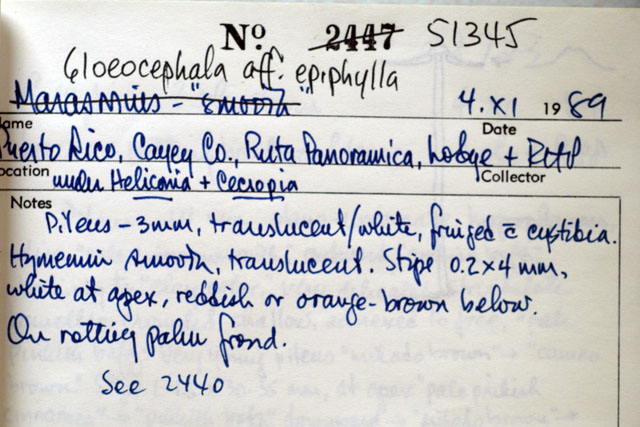 No 2447 51345
Gloeocephala aff. epiphylla
Marasmius - "smooth" 4.XI 1989
ame Date
Puerto Rico, Cayey Co., Ruta Panoramica, Lodge +
ocation under Heliconia + Cecropia Collector
Notes
Pileus - 3mm, translucent/white, fringed c̄ cystidia.
Hymenium smooth, translucent. Stipe 0.2 x 4 mm,
white at apex, reddish or orange-brown below.
On rotting palm frond.
See 2440